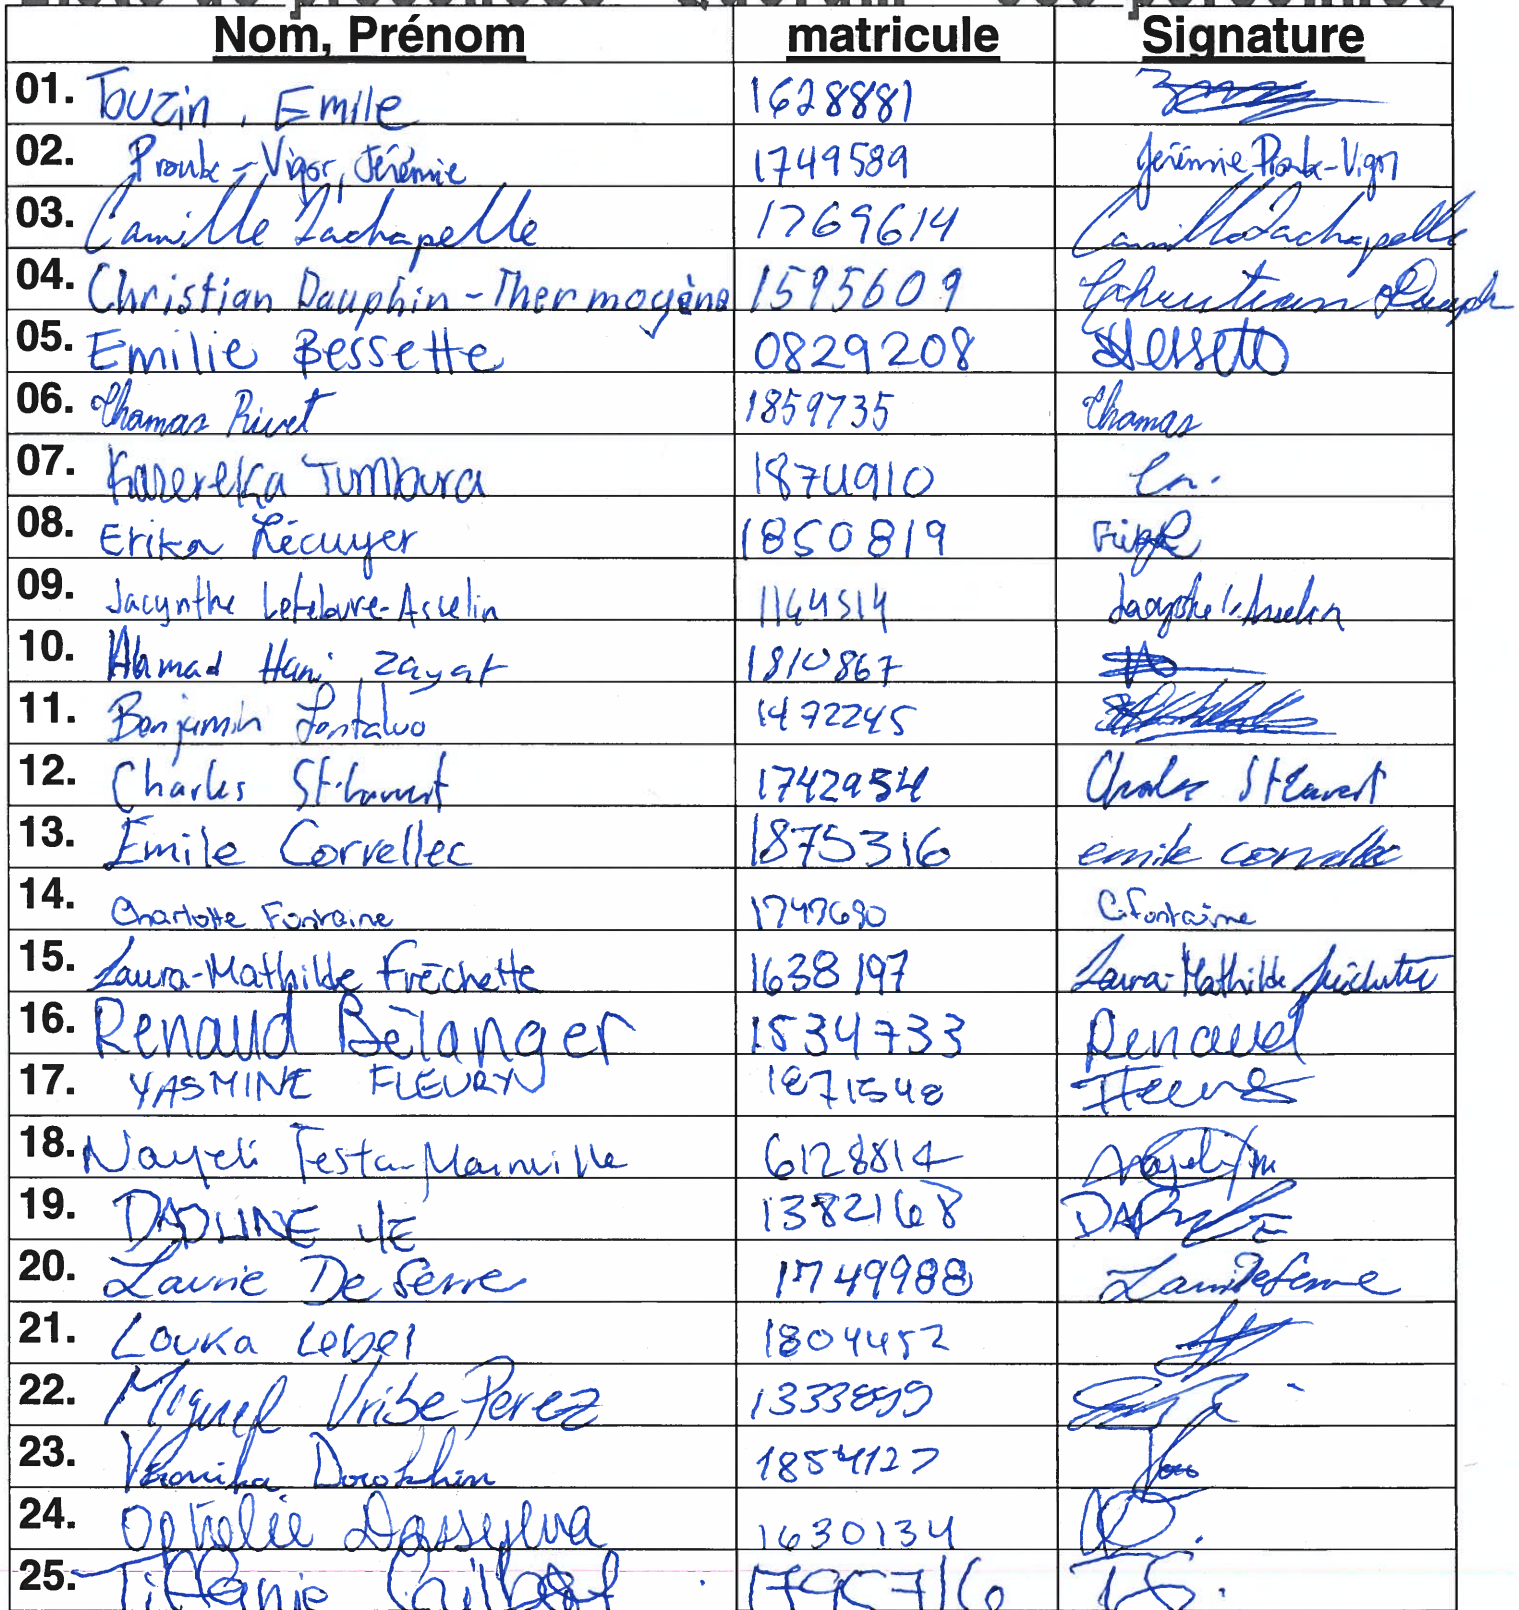 Nom, Prénom matricule Signature
01. Touzin, Emile 1628881
02. Proulx-Vigor, Jérémie 1749589 Jérémie Proulx-Vigor
03. Camille Lachapelle 1769614 Camille Lachapelle
04. Christian Dauphin-Thermogène 1595609 Christian Dauph
05. Emilie Bessette 0829208 Bessette
06. Thomas Rivet 1859735 Thomas
07. Kasereka Tumbura 1874910
08. Erika Lécuyer 1850819
09. Jacynthe Lefebvre-Asselin 1144514 Jacynthe L-Asselin
10. Ahmad Hani Zayat 1810867
11. Benjamin 1472245
12. Charles St-Laurent 1742954 Charles St-Laurent
13. Emile Corvellec 1875316 emile corvellec
14. Charlotte Fontaine 1747690 C.Fontaine
15. Laura-Mathilde Fréchette 1638197 Laura-Mathilde Fréchette
16. Renaud Bélanger 1534733 Renaud
17. YASMINE FLEURY 1871548
18. Nayeli Testa-Mainville 6128814
19. DADLINE 1382168
20. Laurie De Serre 1749988 Laurie De Serre
21. Louka Lebel 1804452
22. Miguel Uribe Perez 1333899
23. Veronika Dorokhin 1854127
24. Ophélie Dassylva 1630134
25. Tiffanie Guilbert 1795716 TG.